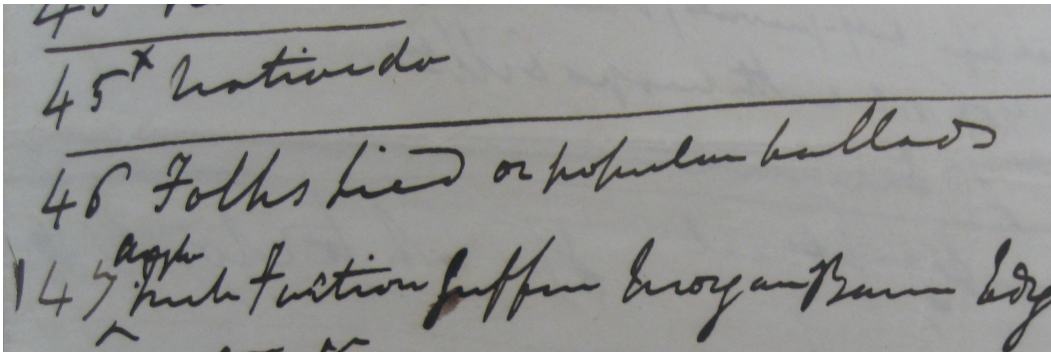 45
45 x Native do
46 Folks Lied or popular ballads
147 Anglo Irish Fiction Griffin Morgan Banim Edg